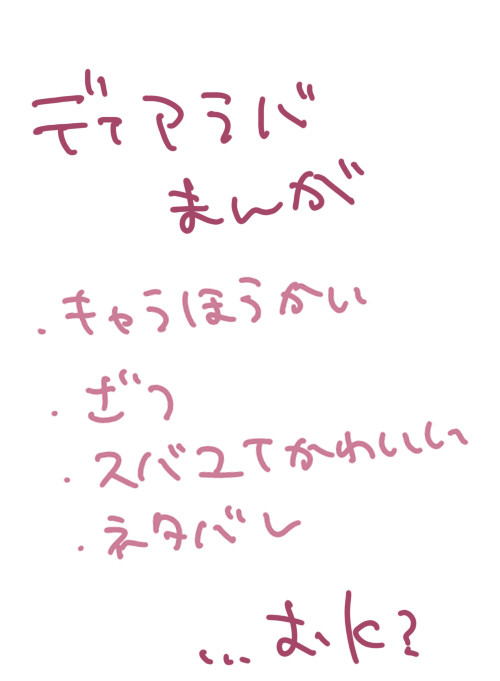 ディアラバ
まんが
・きゃらほうかい
・ざつ
・スバユイてかわいい
・ネタバレ
…おk?